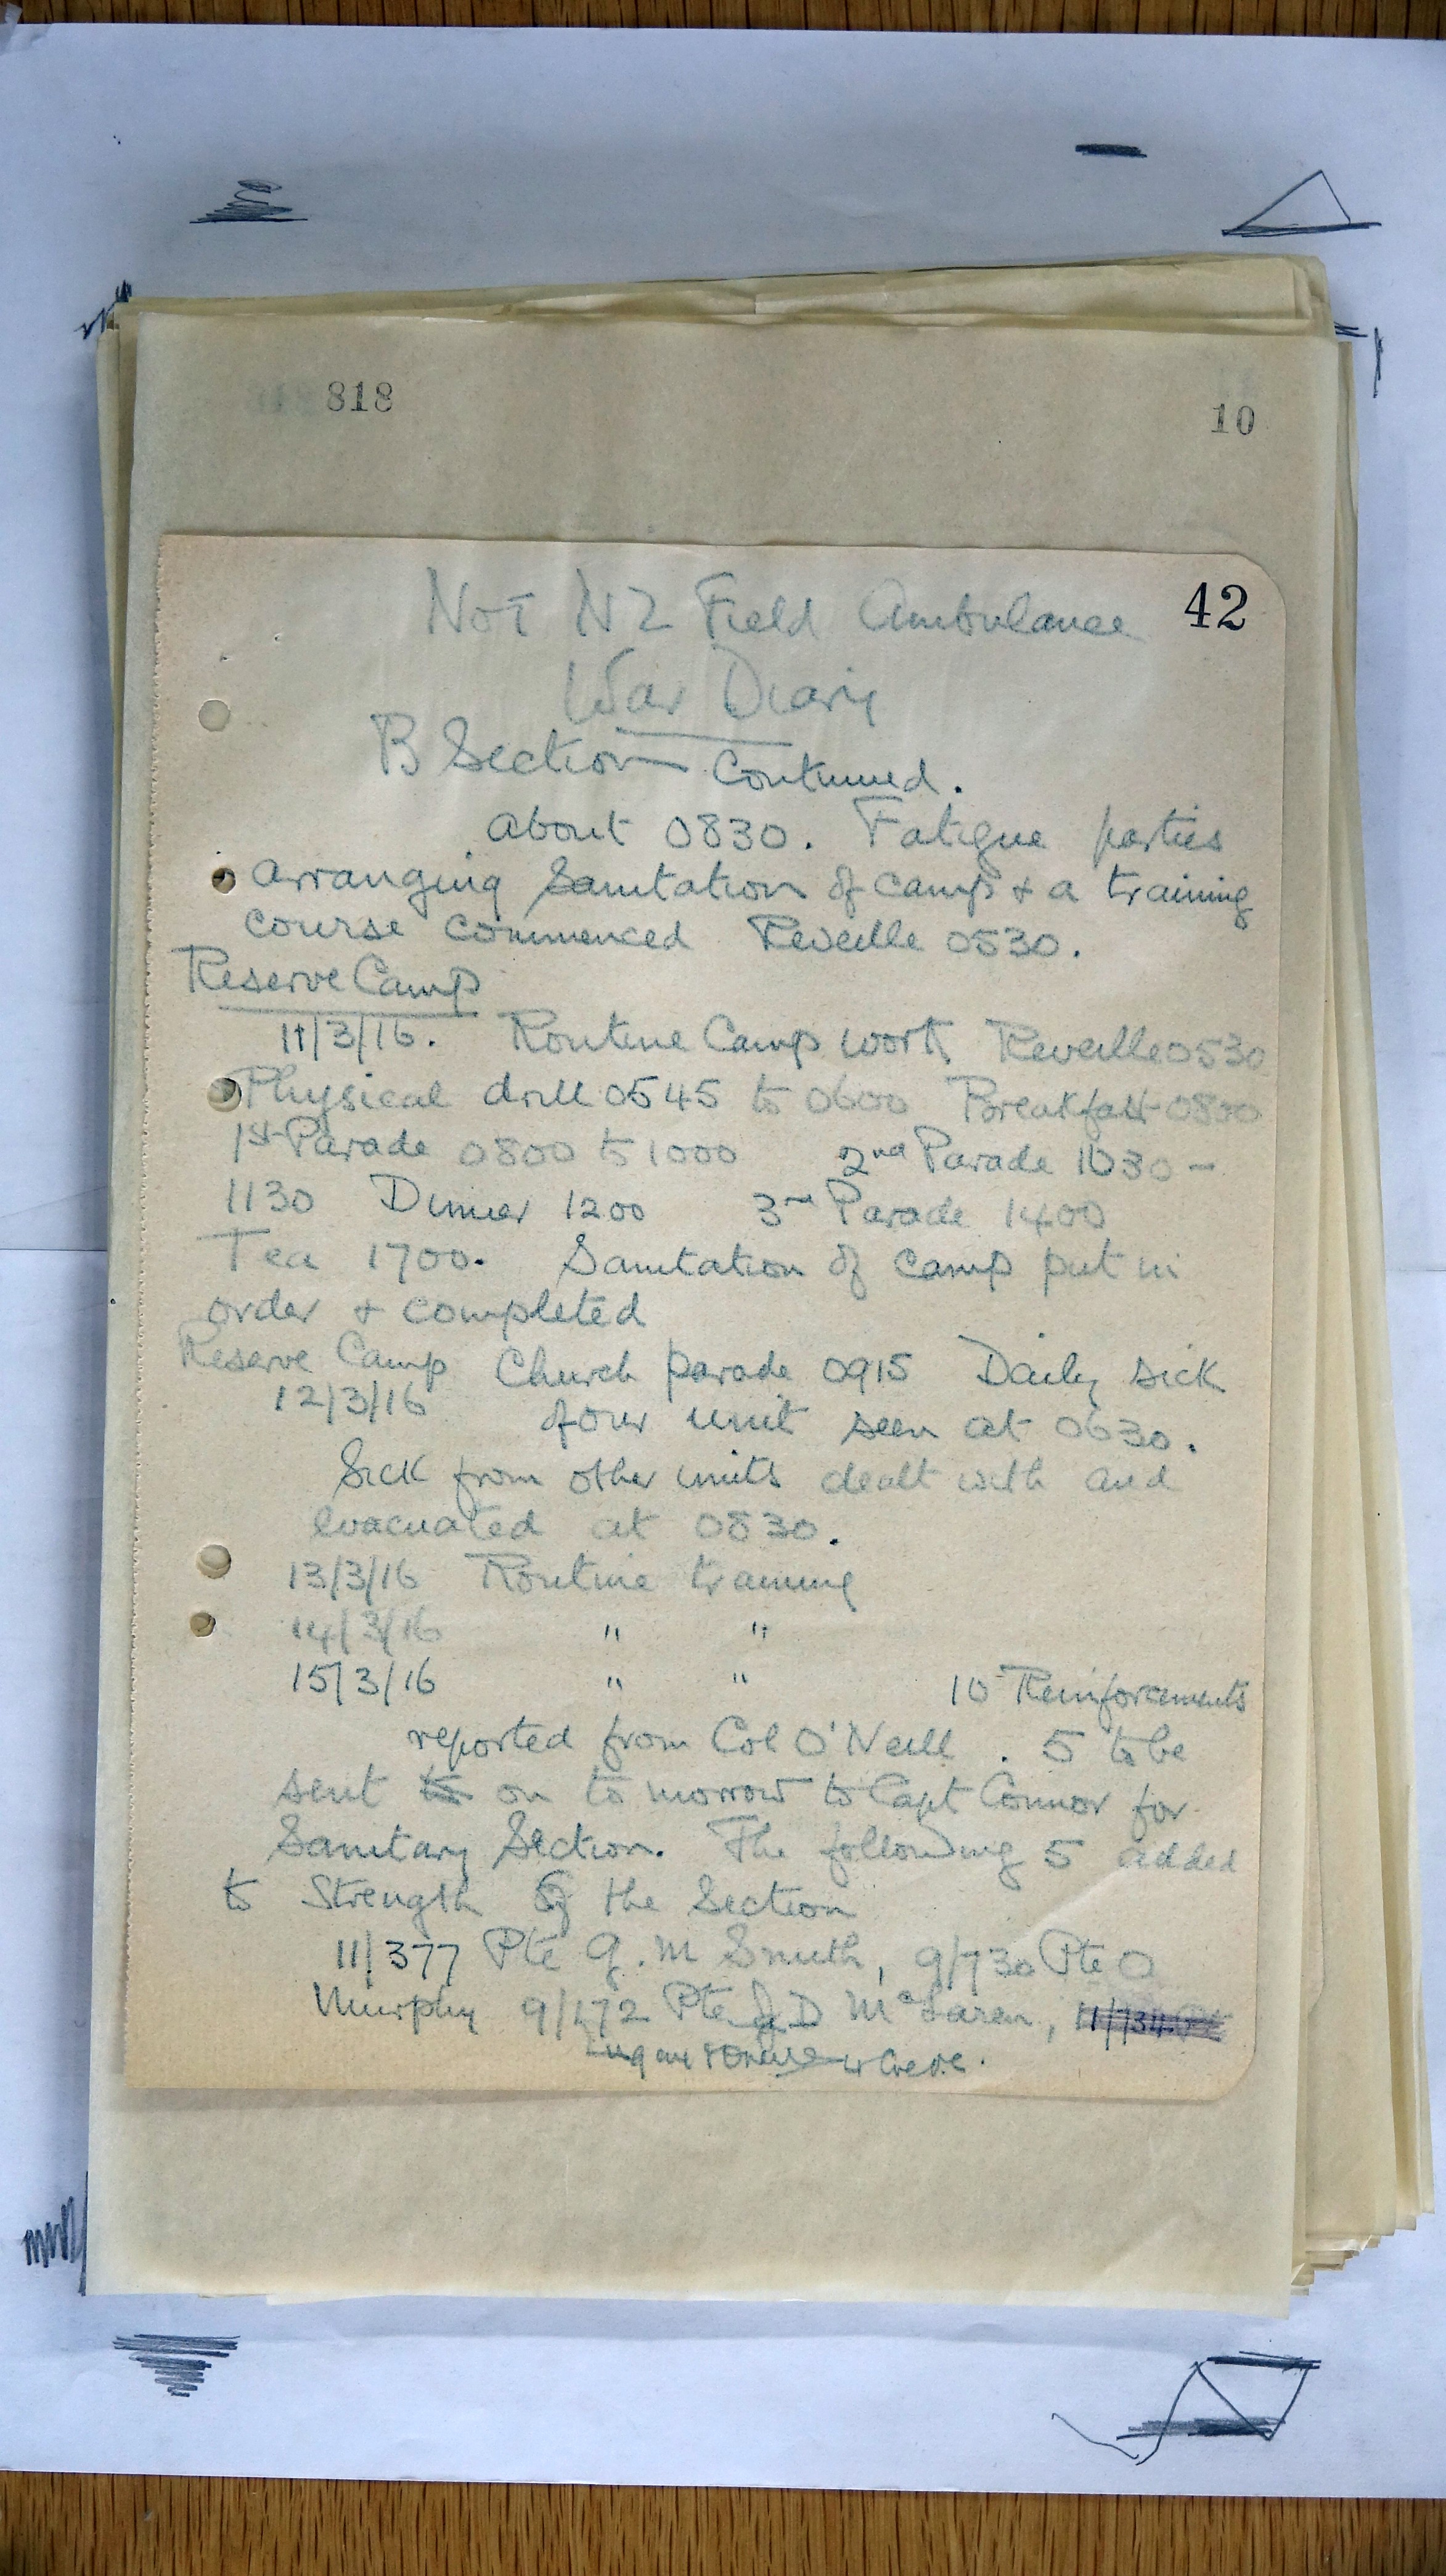 818
10
42
No 1 NZ Field Ambulance
War Diary
B Section Continued.
about 0830. Fatigue parties
arranging Sanitation of camp & a training
course commenced Reveille 0530.
Reserve Camp
11/3/16. Routine Camp work Reveille 0530
Physical drill 0545 to 0600 Breakfast 0800
1st Parade 0800 to 1000 2nd Parade 1030 -
1130 Dinner 1200 3rd Parade 1400
Tea 1700. Sanitation of camp put in
order & completed
Reserve Camp Church parade 0915 Daily sick
12/3/16 of our unit seen at 0630.
Sick from other units dealt with and
evacuated at 0830.
13/3/16 Routine training
14/3/16 " "
15/3/16 " " 10 Reinforcements
reported from Col O'Neill. 5 to be
sent to on to morrow to Capt Connor for
Sanitary Section. The following 5 added
to Strength of the Section
11/377 Pte G. M Smith, 9/730 Pte O
Murphy 9/172 Pte J D McLaren, 11/734 Pte